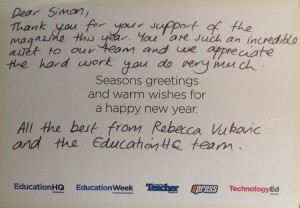 Dear Simon,
Thank you for your support of the
magazine this year. You are such an incredible
asset to our team and we appreciate
the hard work you do very much.
Seasons greetings
and warm wishes for
a happy new year.
All the best from Rebecca Vukovic
and the EducationHQ team.
EducationHQ EducationWeek Teacher xpress TechnologyEd